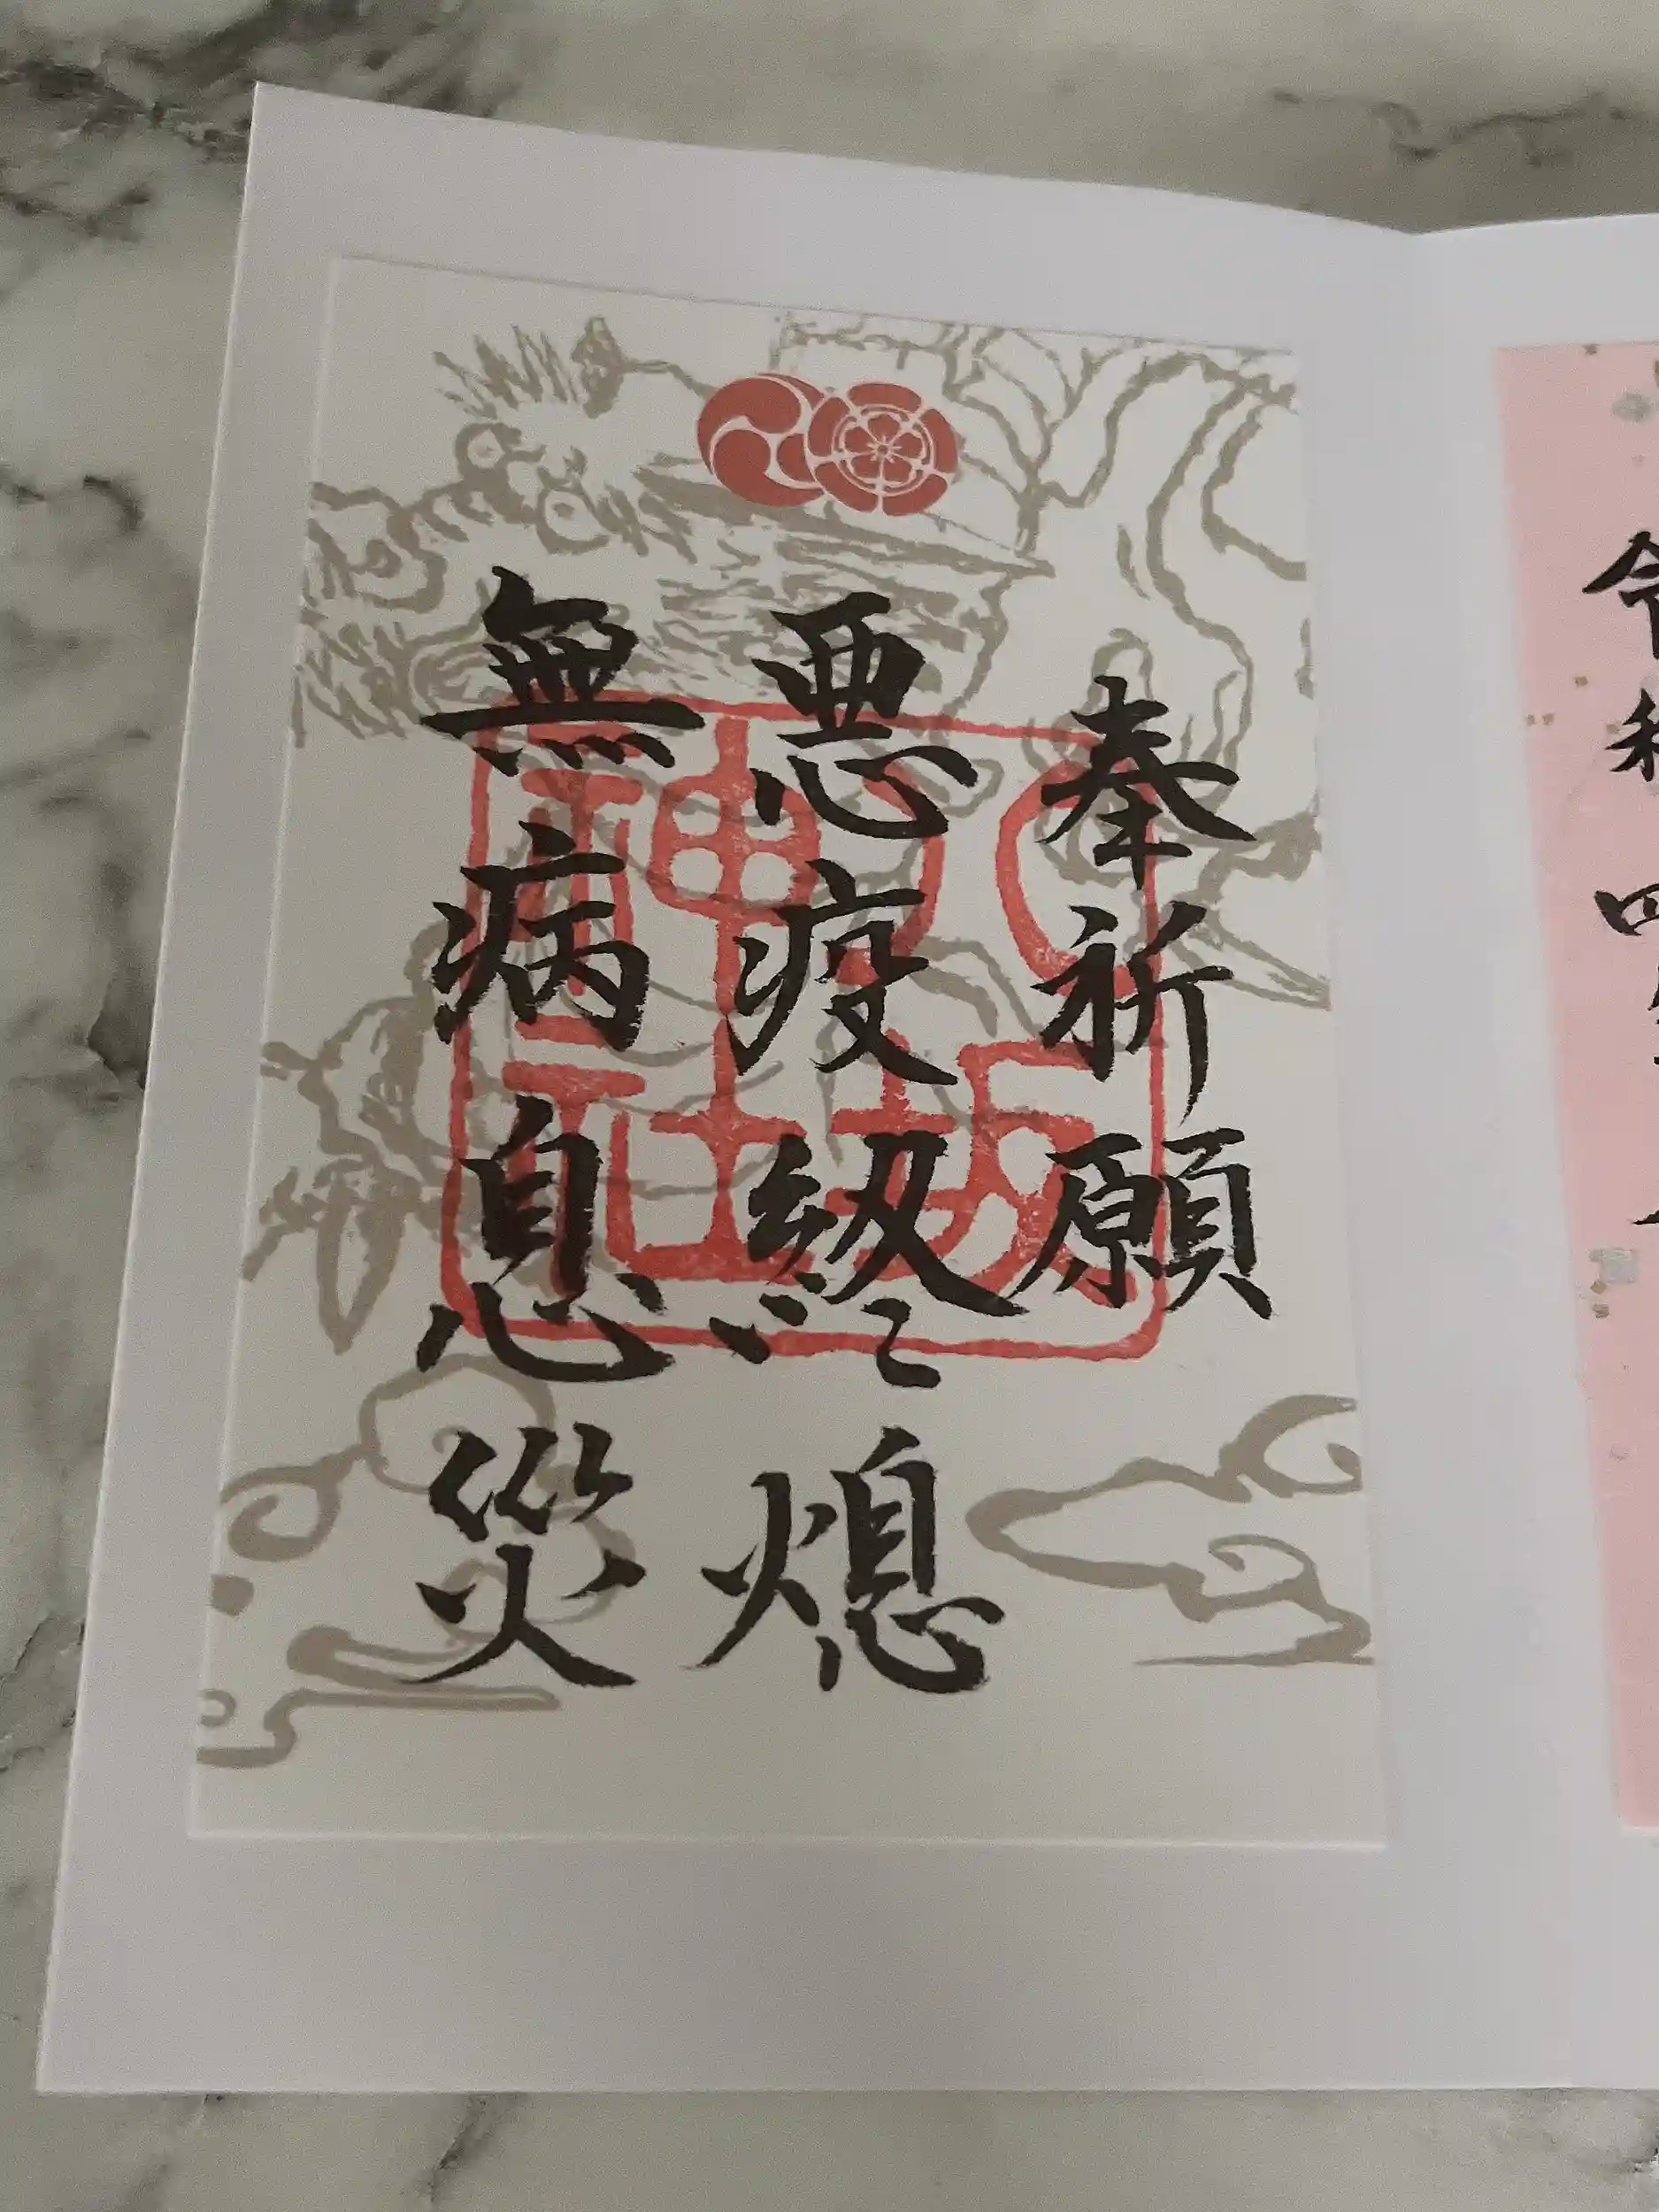 奉祈願
悪疫終熄
無病息災
令和四年